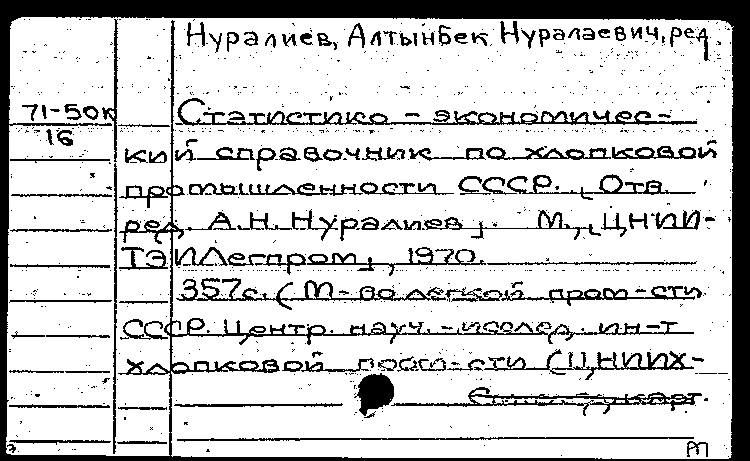 Нуралиев, Алтынбек Нуралаевич, ред.
71-50к
16
Статистико-экономичес-
кий справочник по хлопковой
промышленности СССР. [Отв.
ред. А.Н. Нуралиев]. М., [ЦНИИ-
ТЭИЛегпром], 1970.
357с. (М-во легкой пром-сти
СССР. Центр. науч.-исслед. ин-т
хлопковой пром-сти (ЦНИИХ-
карт.